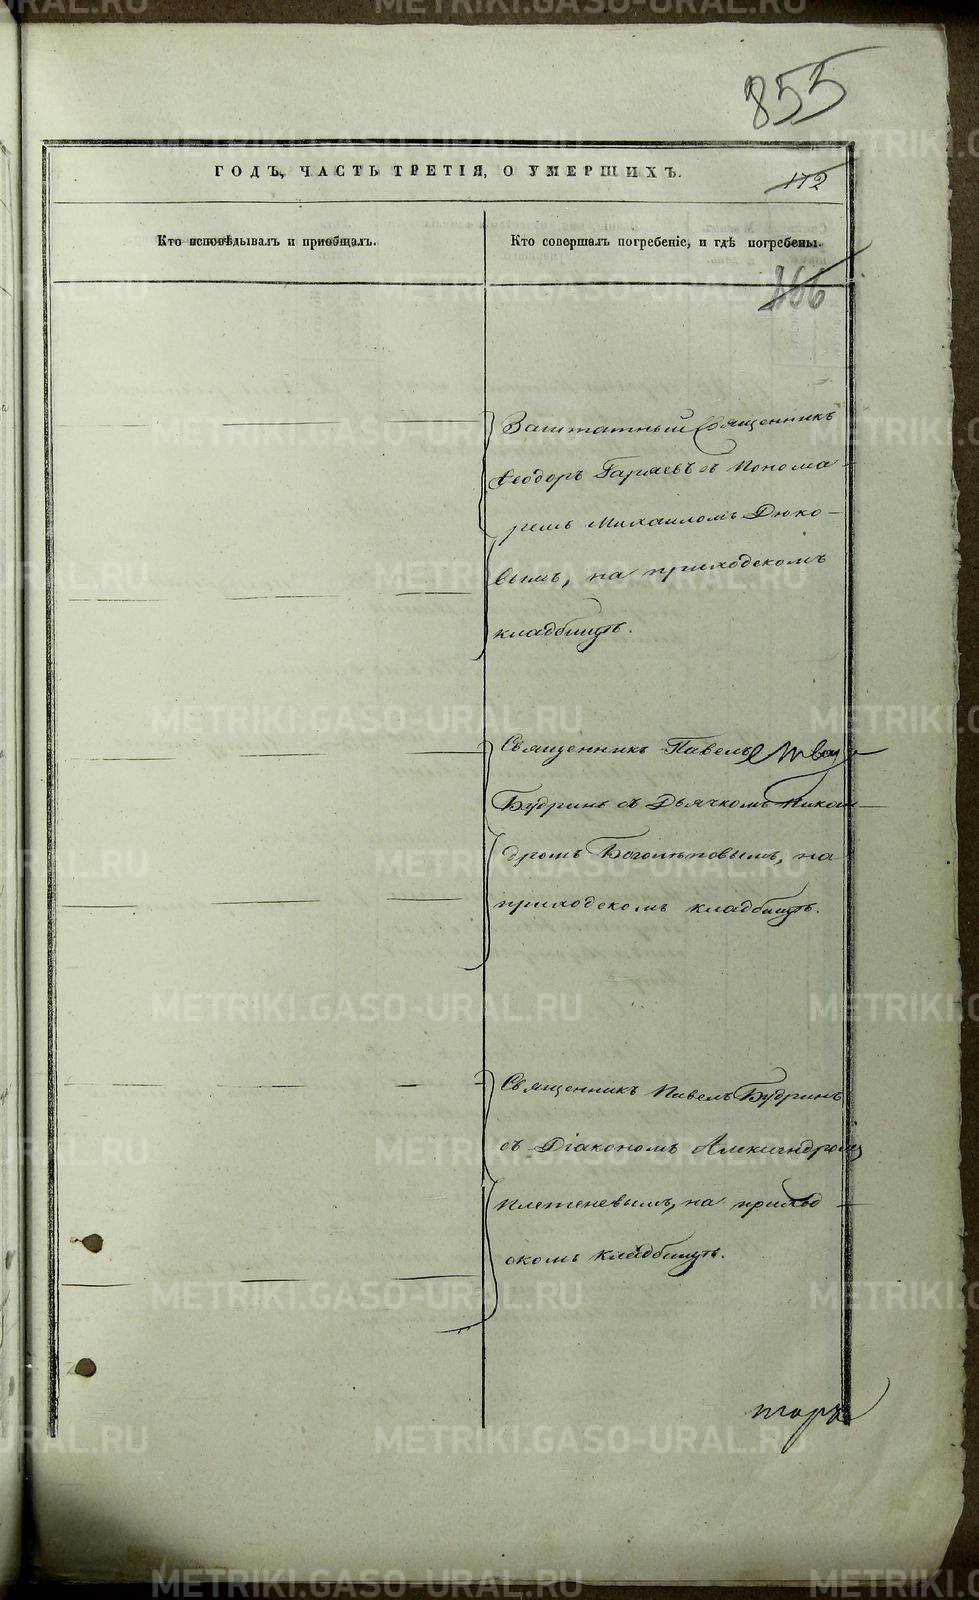 855
ГОДЪ, ЧАСТЬ ТРЕТІЯ, О УМЕРШИХЪ.
112
Кто исповѣдывалъ и пріобщалъ.
Кто совершалъ погребеніе, и гдѣ погребены.
Заштатный Священникъ
Ѳеодоръ Гаряевъ съ Понома-
ремъ Михаиломъ Дюко-
вымъ, на приходскомъ
кладбищѣ.
Священникъ Павелъ
Будринъ съ Дьячкомъ Никан-
дромъ Боголѣповымъ, на
приходскомъ кладбищѣ.
Священникъ Павелъ Будринъ
съ Діакономъ Александромъ
Плетеневымъ, на приход-
скомъ кладбищѣ.
METRIKI.GASO-URAL.RU